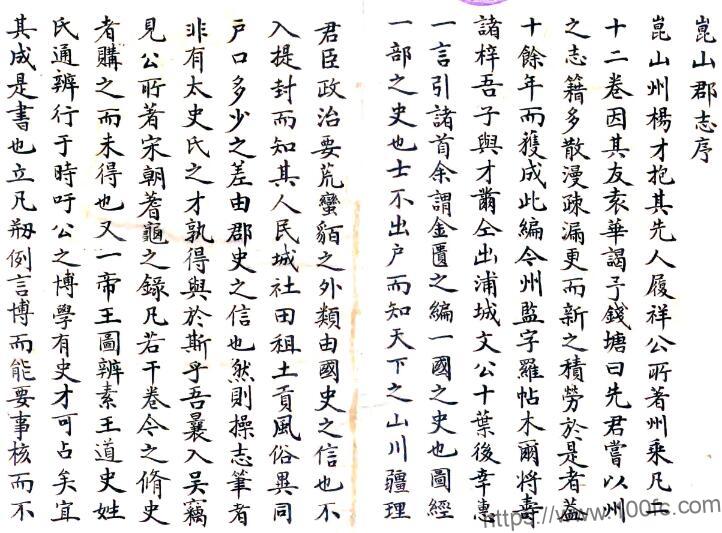 崑山郡志序
崑山州楊才抱其先人履祥公所著州乗凡二
十二卷因其友袁華謁予錢塘曰先君嘗以州
之志籍多散漫疎漏更而新之積勞於是者葢
十餘年而獲成此編今州監孛羅帖木爾將壽
諸梓吾子與才爾仝出浦城文公十葉後幸惠
一言引諸首余謂金匱之編一國之史也圖經
一部之史也士不出户而知天下之山川疆理
君臣政治要荒蠻貊之外類由國史之信也不
入提封而知其人民城社田租土貢風俗異同
户口多少之差由郡史之信也然則操志筆者
非有太史氏之才孰得與於斯乎吾曩入吴竊
見公所著宋朝蓍龜之錄凡若干卷今之脩史
者購之而未得也又一帝王圖辨素王道史姓
氏通辨行于時吁公之博學有史才可占矣宜
其成是書也立凡剏例言博而能要事核而不
https://www.100fs.com